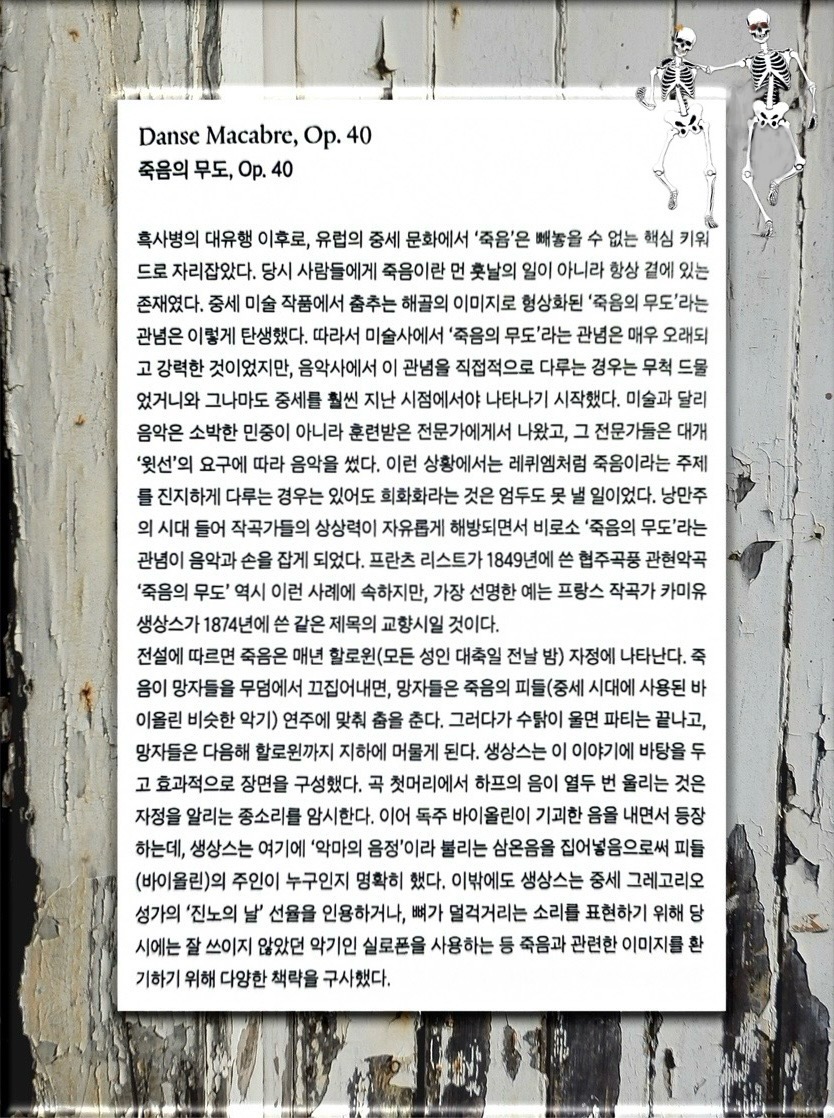 Danse Macabre, Op. 40
죽음의 무도, Op. 40
흑사병의 대유행 이후로, 유럽의 중세 문화에서 ‘죽음’은 빼놓을 수 없는 핵심 키워
드로 자리잡았다. 당시 사람들에게 죽음이란 먼 훗날의 일이 아니라 항상 곁에 있는
존재였다. 중세 미술 작품에서 춤추는 해골의 이미지로 형상화된 ‘죽음의 무도’라는
관념은 이렇게 탄생했다. 따라서 미술사에서 ‘죽음의 무도’라는 관념은 매우 오래되
고 강력한 것이었지만, 음악사에서 이 관념을 직접적으로 다루는 경우는 무척 드물
었거니와 그나마도 중세를 훨씬 지난 시점에서야 나타나기 시작했다. 미술과 달리
음악은 소박한 민중이 아니라 훈련받은 전문가에게서 나왔고, 그 전문가들은 대개
‘윗선’의 요구에 따라 음악을 썼다. 이런 상황에서는 레퀴엠처럼 죽음이라는 주제
를 진지하게 다루는 경우는 있어도 희화화라는 것은 엄두도 못 낼 일이었다. 낭만주
의 시대 들어 작곡가들의 상상력이 자유롭게 해방되면서 비로소 ‘죽음의 무도’라는
관념이 음악과 손을 잡게 되었다. 프란츠 리스트가 1849년에 쓴 협주곡풍 관현악곡
‘죽음의 무도’ 역시 이런 사례에 속하지만, 가장 선명한 예는 프랑스 작곡가 카미유
생상스가 1874년에 쓴 같은 제목의 교향시일 것이다.
전설에 따르면 죽음은 매년 할로윈(모든 성인 대축일 전날 밤) 자정에 나타난다. 죽
음이 망자들을 무덤에서 끄집어내면, 망자들은 죽음의 피들(중세 시대에 사용된 바
이올린 비슷한 악기) 연주에 맞춰 춤을 춘다. 그러다가 수탉이 울면 파티는 끝나고,
망자들은 다음해 할로윈까지 지하에 머물게 된다. 생상스는 이 이야기에 바탕을 두
고 효과적으로 장면을 구성했다. 곡 첫머리에서 하프의 음이 열두 번 울리는 것은
자정을 알리는 종소리를 암시한다. 이어 독주 바이올린이 기괴한 음을 내면서 등장
하는데, 생상스는 여기에 ‘악마의 음정’이라 불리는 삼온음을 집어넣음으로써 피들
(바이올린)의 주인이 누구인지 명확히 했다. 이밖에도 생상스는 중세 그레고리오
성가의 ‘진노의 날’ 선율을 인용하거나, 뼈가 덜걱거리는 소리를 표현하기 위해 당
시에는 잘 쓰이지 않았던 악기인 실로폰을 사용하는 등 죽음과 관련한 이미지를 환
기하기 위해 다양한 책략을 구사했다.